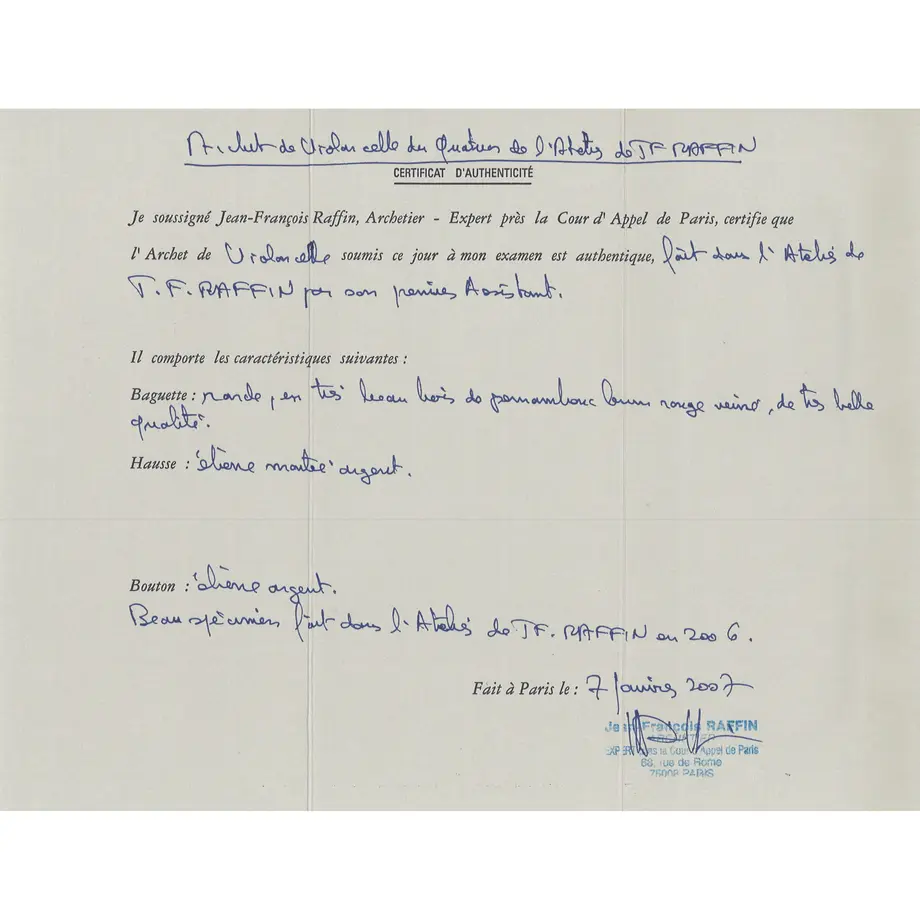 Archet de Violoncelle du Quatuor de l'Atelier de JF RAFFIN
CERTIFICAT D'AUTHENTICITÉ
Je soussigné Jean-François Raffin, Archetier - Expert près la Cour d'Appel de Paris, certifie que
l'Archet de Violoncelle soumis ce jour à mon examen est authentique, fait dans l'Atelier de
J.F. RAFFIN par son premier Assistant.
Il comporte les caractéristiques suivantes :
Baguette : ronde, en très beau bois de pernambouc brun rouge veiné, de très belle
qualité.
Hausse : ébène montée argent.
Bouton : ébène argent.
Beau spécimen fait dans l'Atelier de JF. RAFFIN en 2006.
Fait à Paris le : 7 Janvier 2007
Jean-François RAFFIN
EXPERT près la Cour d'Appel de Paris
68, rue de Rome
75008 PARIS